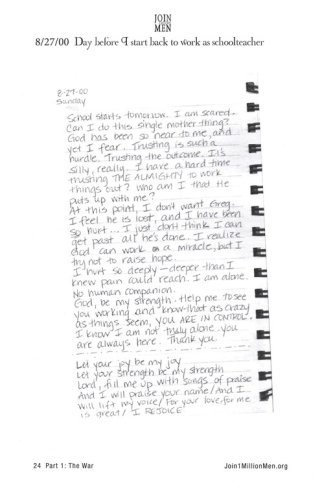 JOIN
MEN
8/27/00 Day before I start back to work as schoolteacher
8-27-00
Sunday
School starts tomorrow. I am scared.
Can I do this single mother thing?
God has been so near to me, and
yet I fear. Trusting is such a
hurdle. Trusting the outcome. It's
silly, really. I have a hard time
trusting THE ALMIGHTY to work
things out? Who am I that He
puts up with me?
At this point, I don't want Greg.
I feel he is lost, and I have been
so hurt... I just don't think I can
get past all he's done. I realize
God can work a miracle, but I
try not to raise hope.
I hurt so deeply - deeper than I
knew pain could reach. I am alone.
No human companion.
God, be my strength. Help me to see
you working and know that as crazy
as things seem, YOU ARE IN CONTROL.
I know I am not truly alone you
are always here. Thank you.
Let your joy be my joy
Let your strength be my strength
Lord, fill me up with songs of praise
And I will praise your name/And I
will lift my voice/For your love for me
is great/ I REJOICE
24 Part 1: The War
Join1MillionMen.org